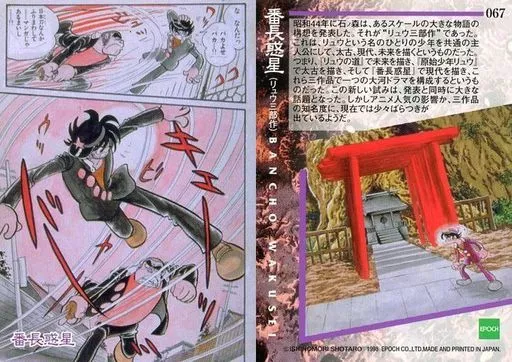 な なんだっ
バカカ…!
日本刀なんか
ふりまわして
あぶない
キューン
番長惑星
番長惑星
(リュウ三部作)
BANCHO WAKUSEI
067
昭和44年に石ノ森は、あるスケールの大きな物語の
構想を発表した。それが“リュウ三部作”であった。
これは、リュウという名のひとりの少年を共通の主
人公にして、太古、現代、未来を描くというものだった。
つまり、『リュウの道』で未来を描き、『原始少年リュウ』
で太古を描き、そして『番長惑星』で現代を描き、こ
れら三作品で一つの大河ドラマを構成するというも
のだった。この新しい試みは、発表と同時に大きな
話題となった。しかしアニメ人気の影響か、三作品
の知名度に、現在では少々ばらつきが
出ているようだ。
EPOCH
© ISHINOMORI SHOTARO 1998 EPOCH CO.,LTD.MADE AND PRINTED IN JAPAN.